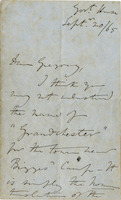 Govt. House
Sept. 20/65
Dear Gregory,
I think you
may not understand
the name of
"Grandchester"
for the town near
Bigges' Camp. It
is simply the
of the